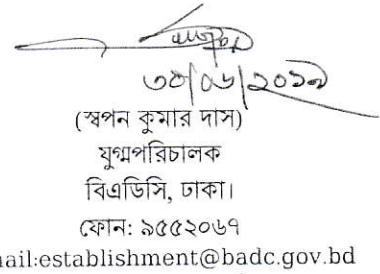 ৩০/০৬/২০১৯
(স্বপন কুমার দাস)
যুগ্মপরিচালক
বিএডিসি, ঢাকা।
ফোন: ৯৫৫২০৬৭
nail:establishment@badc.gov.bd